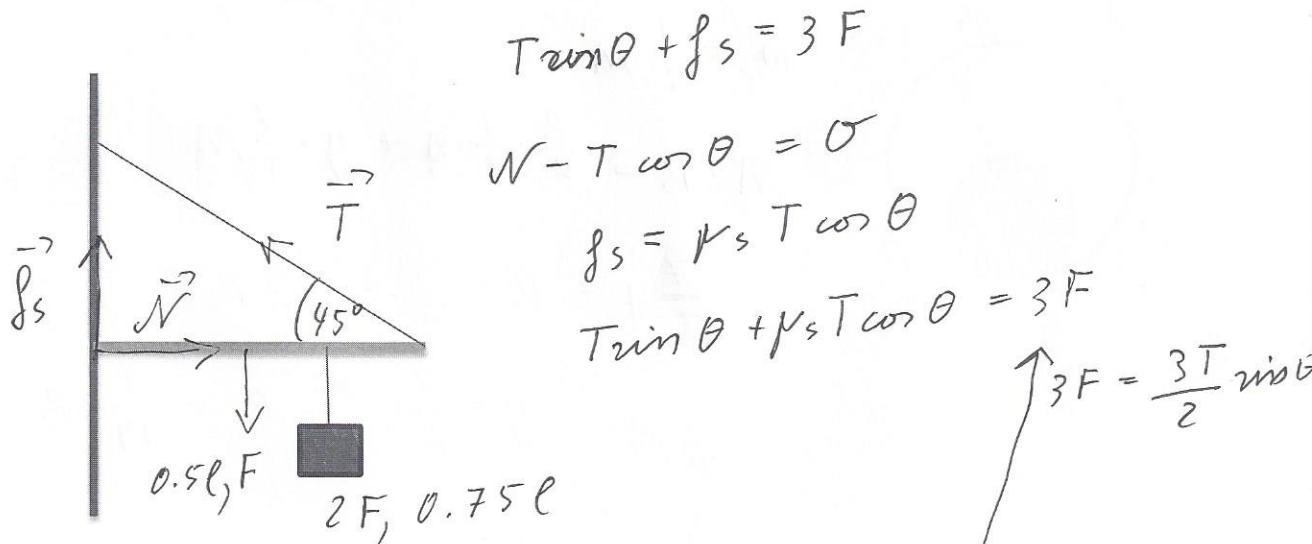 T sin θ + fs = 3F
N - T cos θ = 0
fs = μs T cos θ
T sin θ + μs T cos θ = 3F
3F = 3T/2 sin θ
T
fs
N
45°
0.5ℓ, F
2F, 0.75ℓ